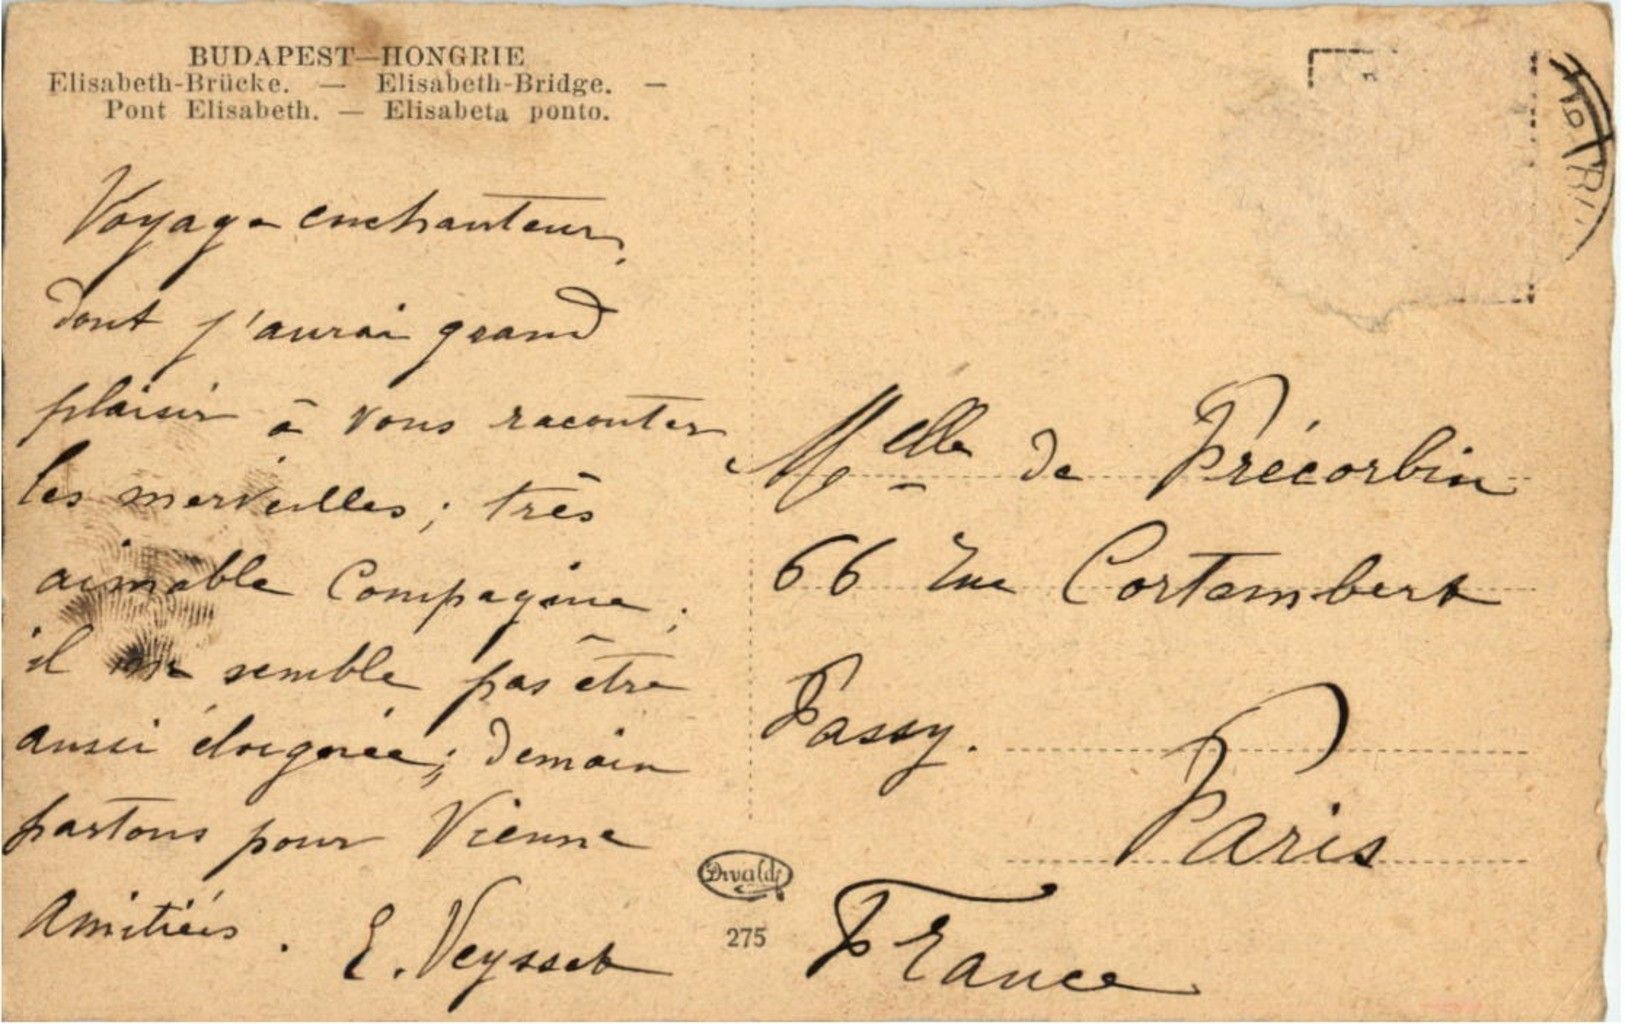 BUDAPEST—HONGRIE
Elisabeth-Brücke. — Elisabeth-Bridge. —
Pont Elisabeth. — Elisabeta ponto.
Voyage enchanteur,
dont j'aurai grand
plaisir à vous raconter
les merveilles ; très
aimable Compagnie ;
il semble pas être
aussi éloignée ; demain
partons pour Vienne
Amitiés. E. Veysset
Melle de Précorbin
66 rue Cortembert
Passy.
Paris
France
Divald
275